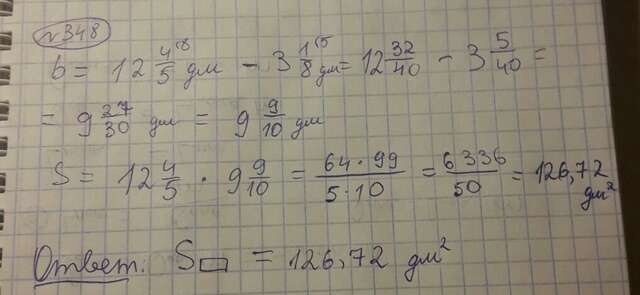 №348
b = 12 4/5 ⁽⁸ дм - 3 1/8 ⁽⁵ дм = 12 32/40 - 3 5/40 =
= 9 27/30 дм = 9 9/10 дм
S = 12 4/5 · 9 9/10 = 64·99/5·10 = 6336/50 = 126,72 дм²
Ответ: S▭ = 126,72 дм²